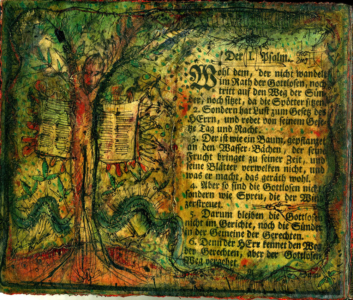 Der I. Psalm.
Wohl dem, der nicht wandelt
im Rath der Gottlosen, noch
tritt auf den Weg der Sün-
der, noch sitzt, da die Spötter sitzen
2. Sondern hat Lust zum Gesetz des
HErrn, und redet von seinem Gese-
tze Tag und Nacht.
3. Der ist wie ein Baum, gepflanzet
an den Wasser-Bächen, der seine
Frucht bringet zu seiner Zeit, und
seine Blätter verwelken nicht, und
was er macht, das geräth wohl.
4. Aber so sind die Gottlosen nicht,
sondern wie Spreu, die der Wind
zerstreuet.
5. Darum bleiben die Gottlosen
nicht im Gerichte, noch die Sünder
in der Gemeine der Gerechten.
6. Denn der HErr kennet den Weg
der Gerechten, aber der Gottlosen
Weg vergehet.